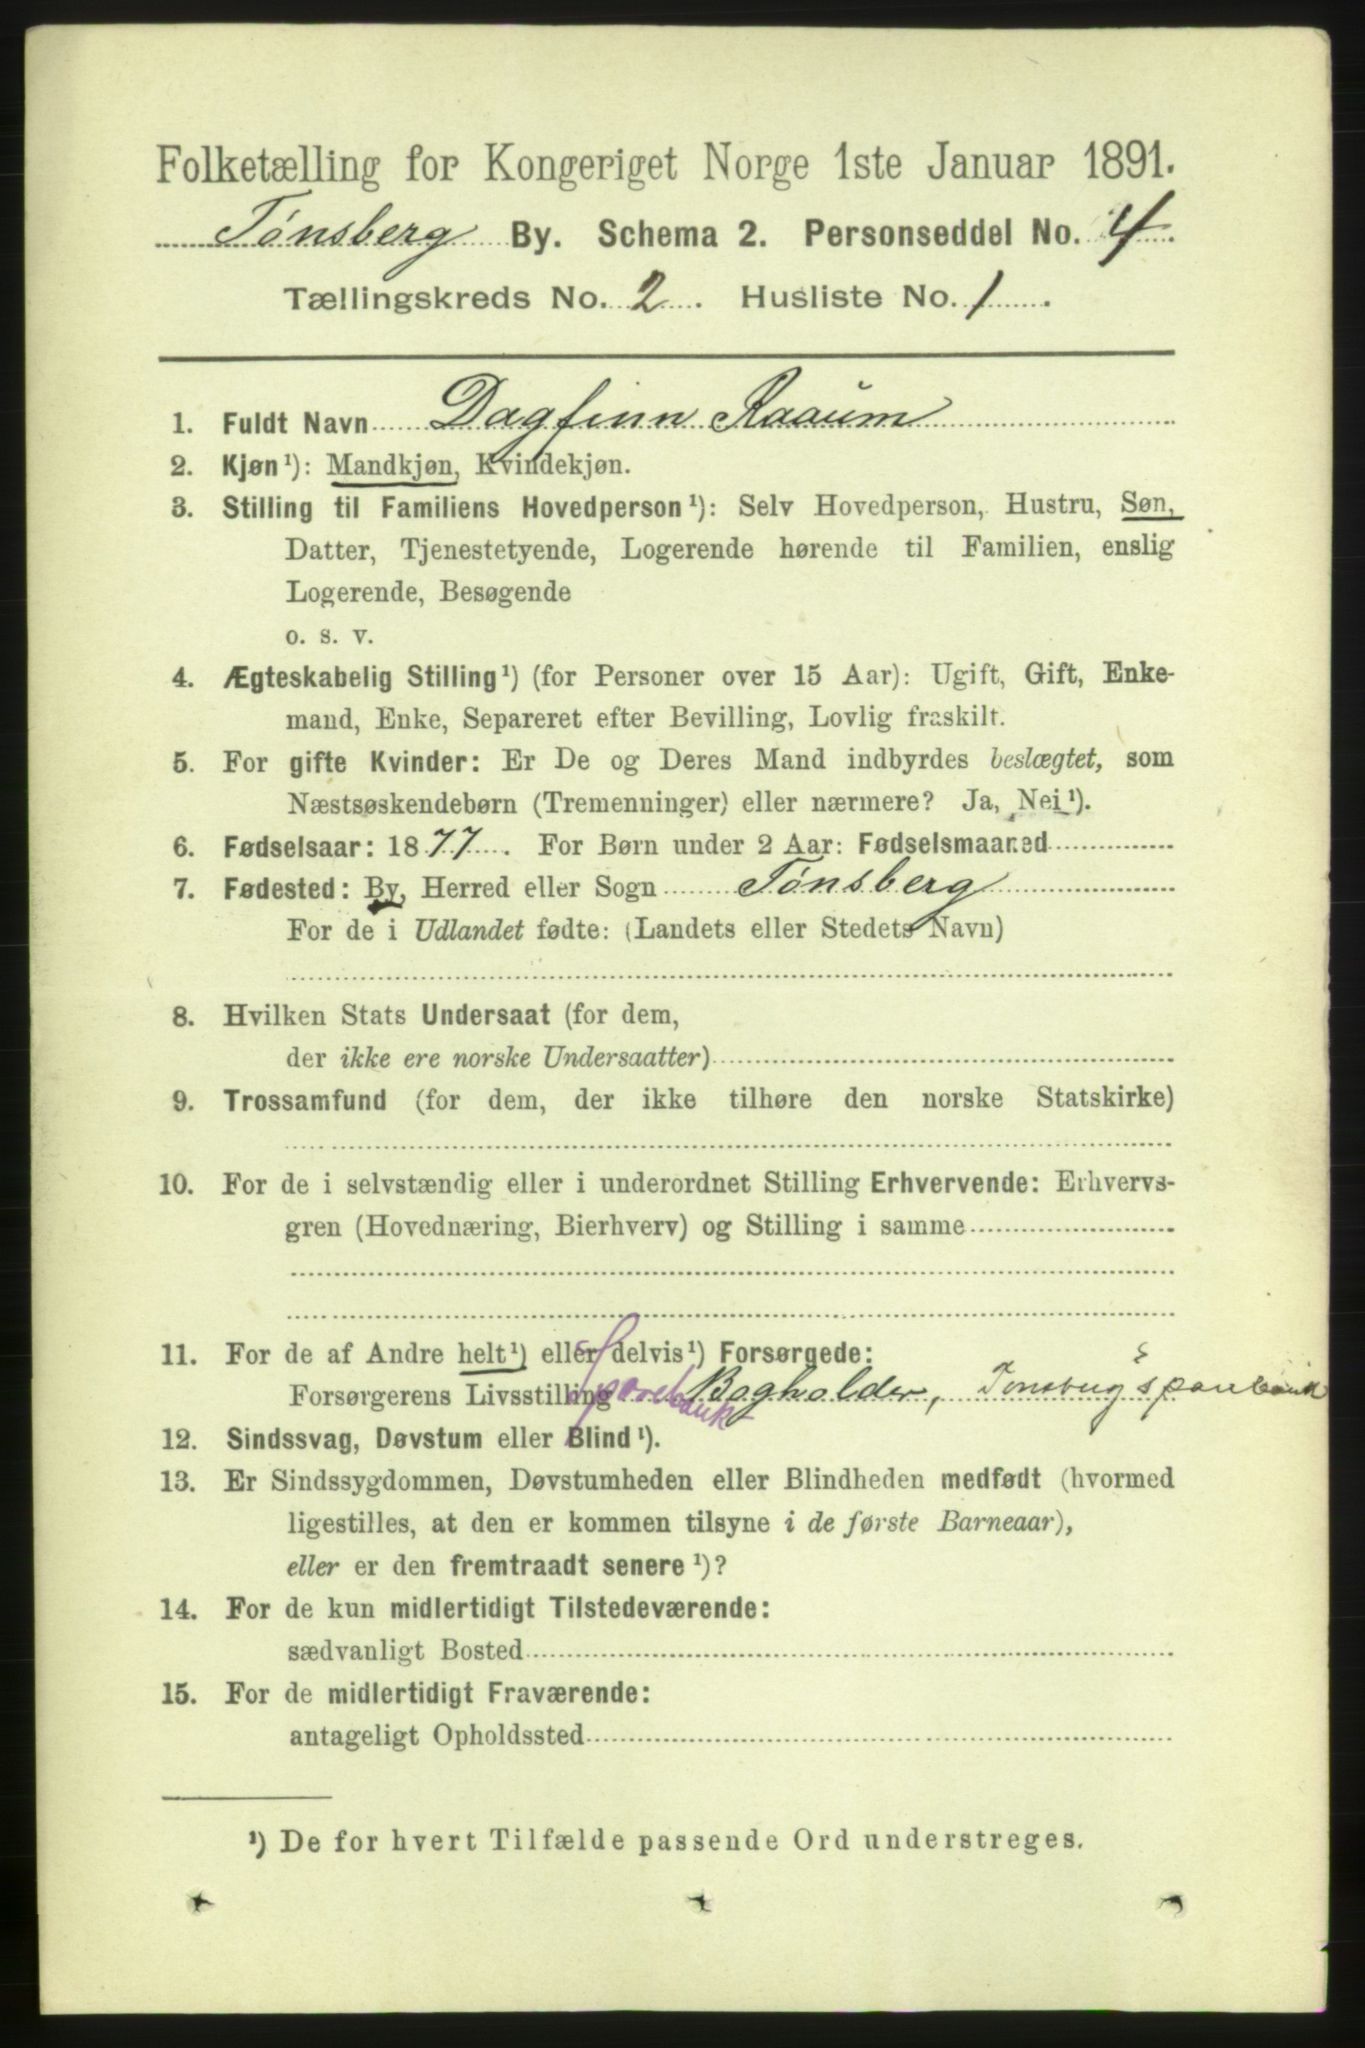 Folketælling for Kongeriget Norge 1ste Januar 1891.
Tønsberg By. Schema 2. Personseddel No. 4.
Tællingskreds No. 2. Husliste No. 1.
1. Fuldt Navn Dagfinn Raaum
2. Kjøn¹): Mandkjøn, Kvindekjøn.
3. Stilling til Familiens Hovedperson¹): Selv Hovedperson, Hustru, Søn,
Datter, Tjenestetyende, Logerende hørende til Familien, enslig
Logerende, Besøgende
o. s. v.
4. Ægteskabelig Stilling¹) (for Personer over 15 Aar): Ugift, Gift, Enke-
mand, Enke, Separeret efter Bevilling, Lovlig fraskilt.
5. For gifte Kvinder: Er De og Deres Mand indbyrdes beslægtet, som
Næstsøskendebørn (Tremenninger) eller nærmere? Ja, Nei¹).
6. Fødselsaar: 1877. For Børn under 2 Aar: Fødselsmaaned
7. Fødested: By, Herred eller Sogn Tønsberg
For de i Udlandet fødte: (Landets eller Stedets Navn)
8. Hvilken Stats Undersaat (for dem,
der ikke ere norske Undersaatter)
9. Trossamfund (for dem, der ikke tilhøre den norske Statskirke)
10. For de i selvstændig eller i underordnet Stilling Erhvervende: Erhvervs-
gren (Hovednæring, Bierhverv) og Stilling i samme
11. For de af Andre helt¹) eller delvis¹) Forsørgede:
Forsørgerens Livsstilling Sparebank Bogholder, Tønsberg Sparebank
12. Sindssvag, Døvstum eller Blind¹).
13. Er Sindssygdommen, Døvstumheden eller Blindheden medfødt (hvormed
ligestilles, at den er kommen tilsyne i de første Barneaar),
eller er den fremtraadt senere¹)?
14. For de kun midlertidigt Tilstedeværende:
sædvanligt Bosted
15. For de midlertidigt Fraværende:
antageligt Opholdssted
¹) De for hvert Tilfælde passende Ord understreges.